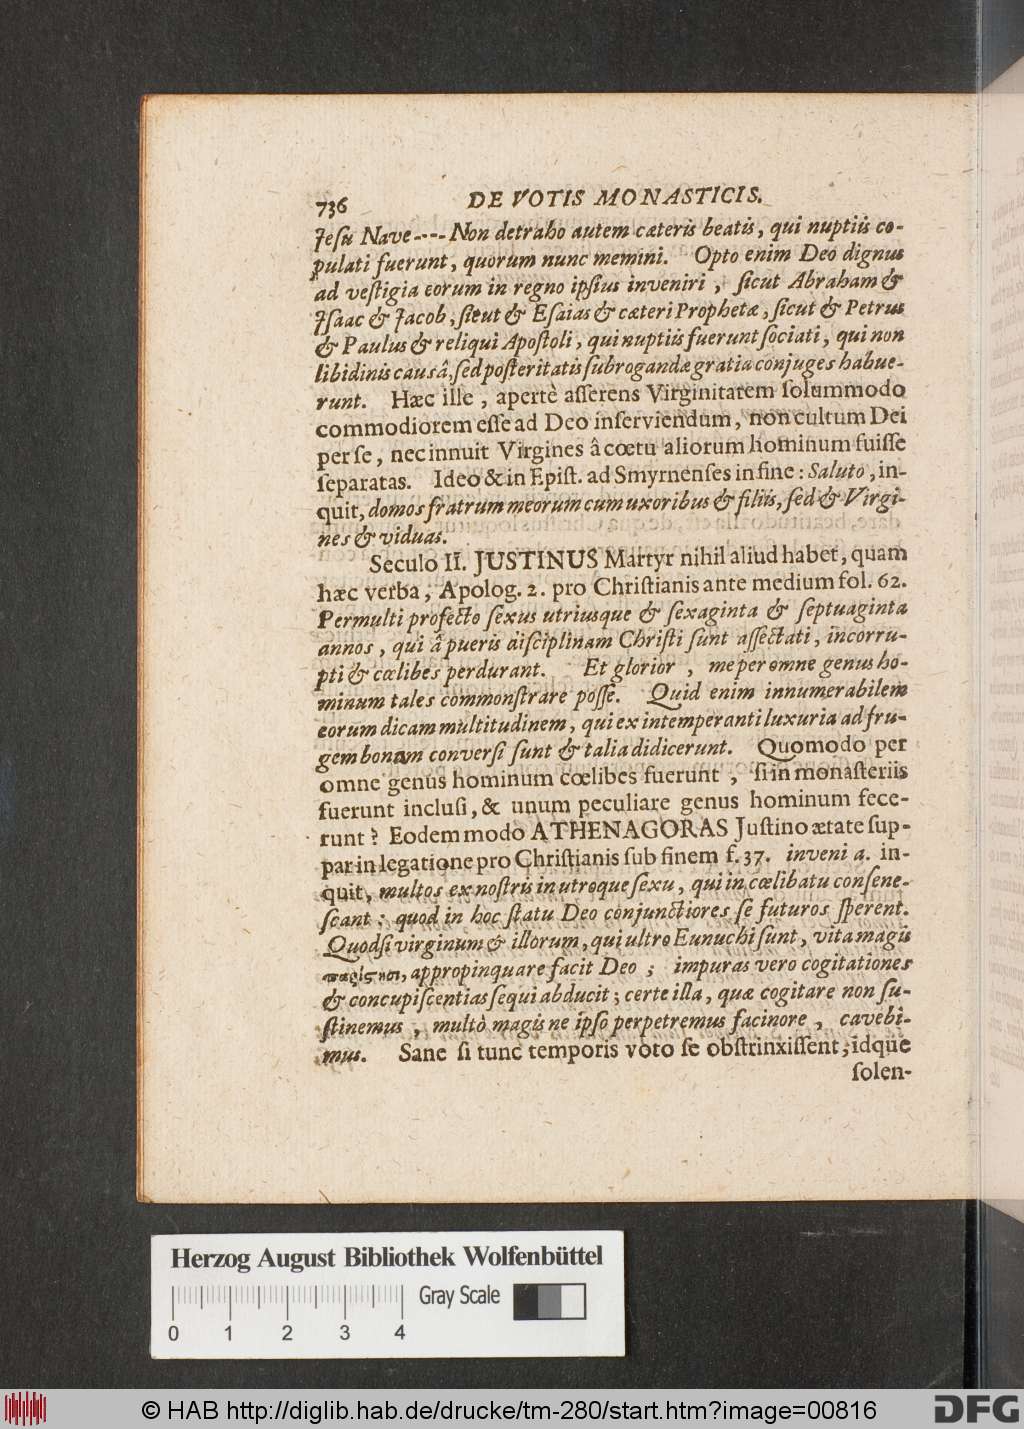 736 DE VOTIS MONASTICIS.
Jesu Nave---- Non detraho autem cæteris beatis, qui nuptiis co-
pulati fuerunt, quorum nunc memini. Opto enim Deo dignus
ad veſtigia eorum in regno ipſius inveniri, ſicut Abraham &
Iſaac & Jacob, ſicut & Eſaias & cæteri Prophetæ, ſicut & Petrus
& Paulus & reliqui Apoſtoli, qui nuptiis fuerunt ſociati, qui non
libidinis causâ, ſed poſteritatis ſubrogandæ gratia conjuges habue-
runt. Hæc ille, apertè aſſerens Virginitatem ſolummodo
commodiorem eſſe ad Deo inſerviendum, non cultum Dei
per ſe, nec innuit Virgines â cœtu aliorum hominum fuiſſe
ſeparatas. Ideo & in Epiſt. ad Smyrnenſes in fine: Saluto, in-
quit, domos fratrum meorum cum uxoribus & filiis, ſed & Virgi-
nes & viduas.
Seculo II. JUSTINUS Martyr nihil aliud habet, quam
hæc verba, Apolog. 2. pro Chriſtianis ante medium fol. 62.
Permulti profecto ſexus utriusque & ſexaginta & ſeptuaginta
annos, qui â pueris diſciplinam Chriſti ſunt aſſectati, incorru-
pti & cœlibes perdurant. Et glorior, me per omne genus ho-
minum tales commonſtrare poſſe. Quid enim innumerabilem
eorum dicam multitudinem, qui ex intemperanti luxuria ad fru-
gem bonam converſi ſunt & talia didicerunt. Quomodo per
omne genus hominum cœlibes fuerunt, ſi in monaſteriis
fuerunt incluſi, & unum peculiare genus hominum fece-
runt? Eodem modo ATHENAGORAS Juſtino ætate ſup-
par in legatione pro Chriſtianis ſub finem f. 37. inveni a. in-
quit, multos ex noſtris in utroque ſexu, qui in cœlibatu conſene-
ſcant: quod in hoc ſtatu Deo conjunctiores ſe futuros ſperent.
Quodſi virginum & illorum, qui ultro Eunuchi ſunt, vita magis
παρίςησι, appropinquare facit Deo; impuras vero cogitationes
& concupiſcentias ſequi abducit; certe illa, quæ cogitare non ſu-
ſtinemus, multò magis ne ipſo perpetremus facinore, cavebi-
mus. Sane ſi tunc temporis voto ſe obſtrinxiſſent, idque
ſolen-
Herzog August Bibliothek Wolfenbüttel
Gray Scale
0 1 2 3 4
© HAB http://diglib.hab.de/drucke/tm-280/start.htm?image=00816
DFG